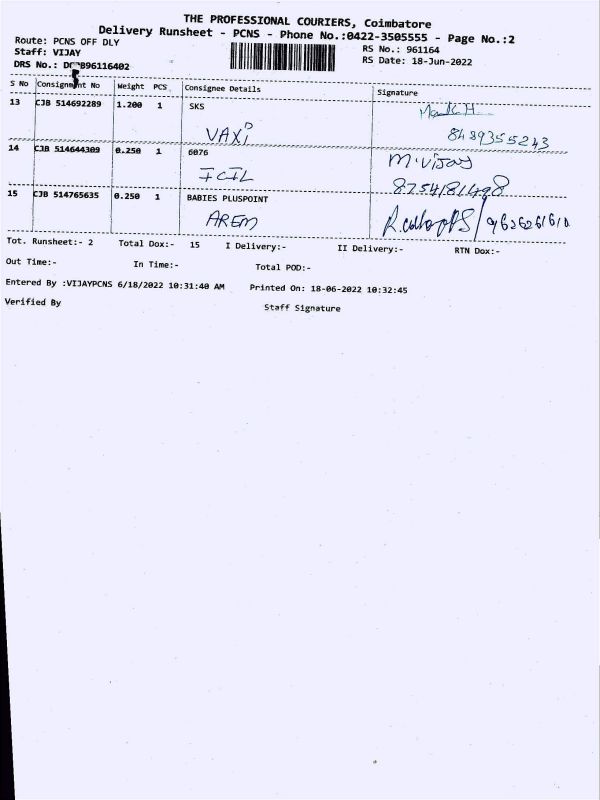 THE PROFESSIONAL COURIERS, Coimbatore
Delivery Runsheet - PCNS - Phone No.:0422-3505555 - Page No.:2
Route: PCNS OFF DLY
RS No.: 961164
Staff: VIJAY
RS Date: 18-Jun-2022
DRS No.:
S No Consignment No Weight PCS Consignee Details Signature
13 CJB 514692289 1.200 1 SKS
VAXi 8489355243
14 CJB 514644309 0.250 1 6076 M.Vijay
ICIL 8754181498
15 CJB 514765635 0.250 1 BABIES PLUSPOINT
AREM
Tot. Runsheet:- 2 Total Dox:- 15 I Delivery:- II Delivery:- RTN Dox:-
Out Time:- In Time:- Total POD:-
Entered By :VIJAYPCNS 6/18/2022 10:31:40 AM Printed On: 18-06-2022 10:32:45
Verified By Staff Signature